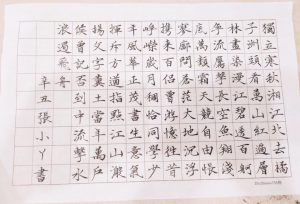 獨立寒秋湘江北去橘
子洲頭看萬山紅遍層
林盡染漫江碧透百舸
爭流鷹擊長空魚翔淺
底萬類霜天競自由悵
寥廓問蒼茫大地誰主沉浮
攜來百侶曾遊憶往昔
崢嶸歲月稠恰同學少
年風華正茂書生意氣
揮斥方遒指點江山激
揚文字糞土當年萬戶
侯曾記否到中流擊水
浪遏飛舟
辛丑張小丫書